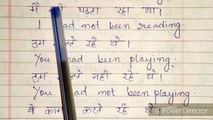 मैं नहीं पढ़ता रहा था।
I had not been reading
तुम खेलते रहे थे।
You had been playing.
तुम खेलते नहीं रहे थे।
You had not been playing.
वे काम करते रहे थे